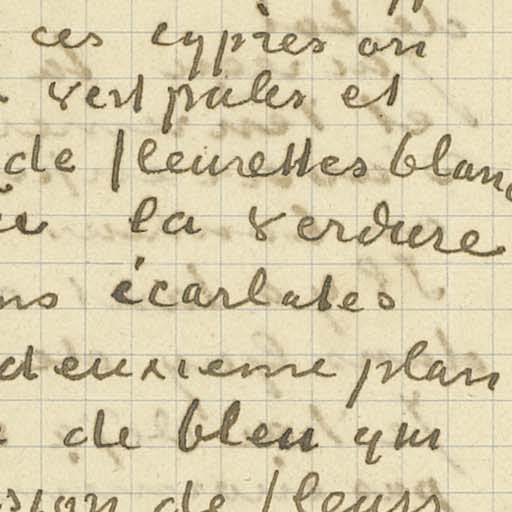 ces cyprès on
vert pales et
de fleurettes blanc
la verdure
ns écarlates
deuxieme plan
de bleu qui
sion de fleurs